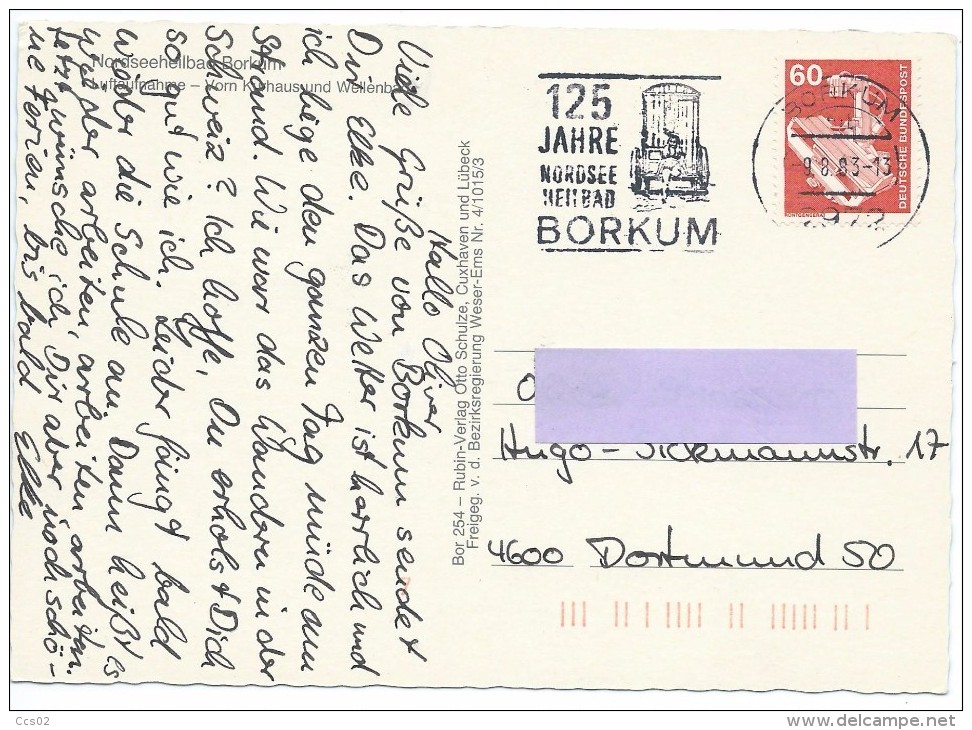 Nordseeheilbad Borkum
Luftaufnahme – Vorn Kurhaus und Wellenbad
Hallo Oliver
Viele Grüße von Borkum sendet
Dir Elke. Das Wetter ist herrlich und
ich liege den ganzen Tag müde am
Strand. Wie war das Wandern in der
Schweiz? Ich hoffe, Du erholst Dich
so gut wie ich. Leider fängt bald
wieder die Schule an. Dann heißt es
wieder arbeiten, arbeiten arbeiten.
Jetzt wünsche ich Dir aber noch schö-
ne Ferien, bis bald Elke
Bor 254 – Rubin-Verlag Otto Schulze, Cuxhaven und Lübeck
Freigeg. v. d. Bezirksregierung Weser-Ems Nr. 4/1015/3
125
JAHRE
NORDSEE
HEILBAD
BORKUM
BORKUM
-9.8.83-13
2972
60
DEUTSCHE BUNDESPOST
RÖNTGENGERÄT
O
Hugo-Sickmannstr. 17
4600 Dortmund 50
Ccs02
delcampe.net